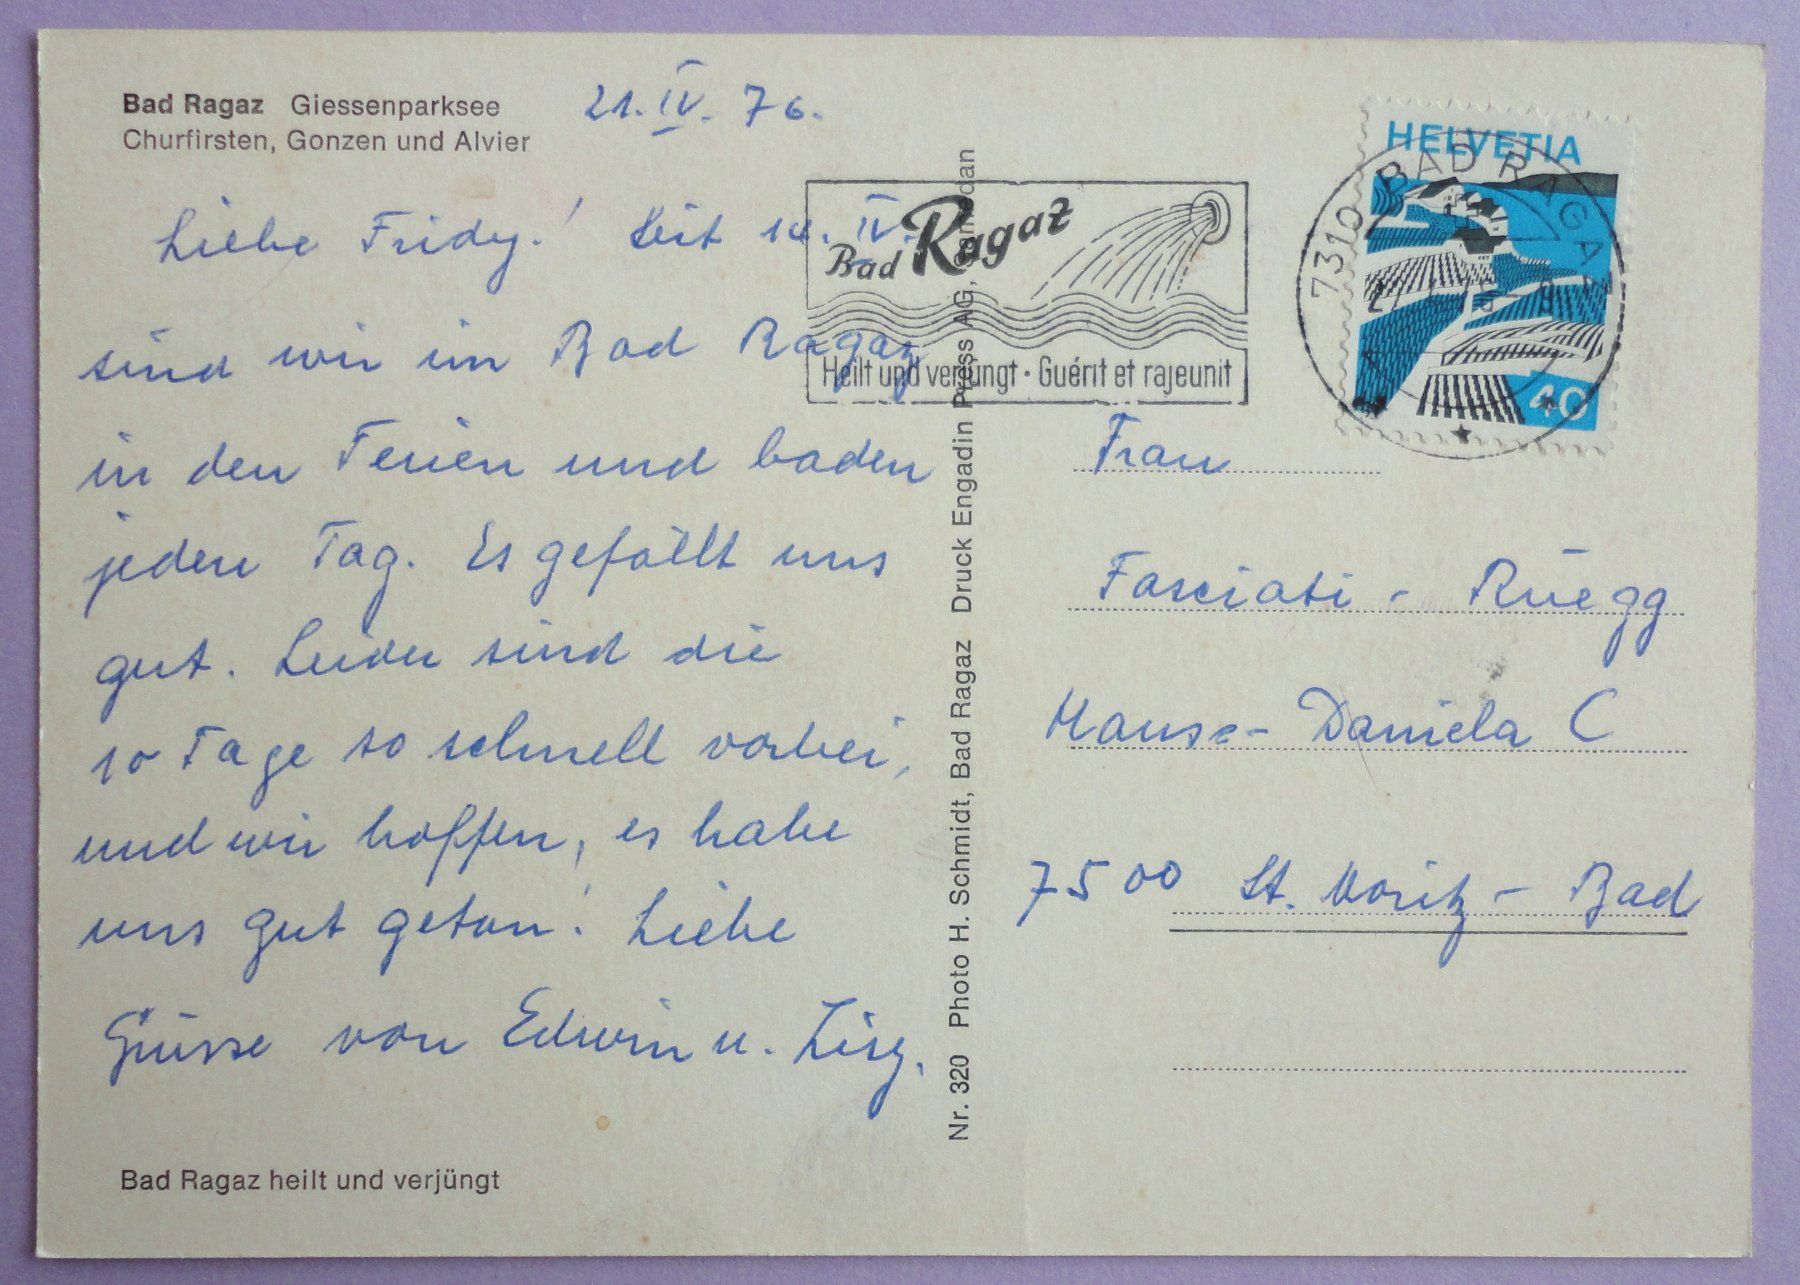 Bad Ragaz Giessenparksee
Churfirsten, Gonzen und Alvier
21. IV. 76.
Liebe Fridy! Seit 14. IV.
sind wir in Bad Ragaz
in den Ferien und baden
jeden Tag. Es gefällt uns
gut. Leider sind die
10 Tage so schnell vorbei,
und wir hoffen, es habe
uns gut getan! Liebe
Grüsse von Edwin u.
Bad Ragaz heilt und verjüngt
Nr. 320 Photo H. Schmidt, Bad Ragaz Druck Engadin Press AG,
Bad Ragaz
Heilt und verjüngt · Guérit et rajeunit
HELVETIA
40
7310 BAD RAGAZ
Frau
Fasciati - Rüegg
Daniela C
7500 St. Moritz - Bad